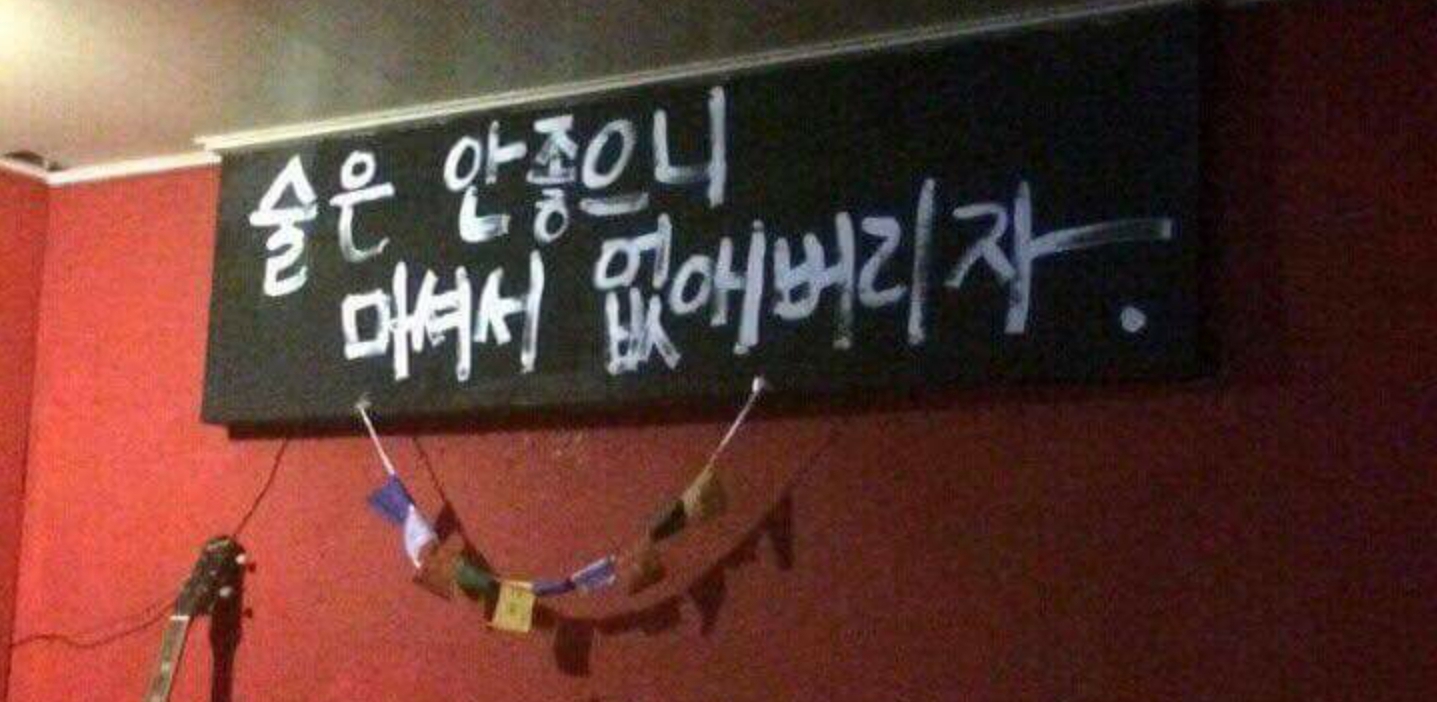 술은 안좋으니
마셔서 없애버리자.